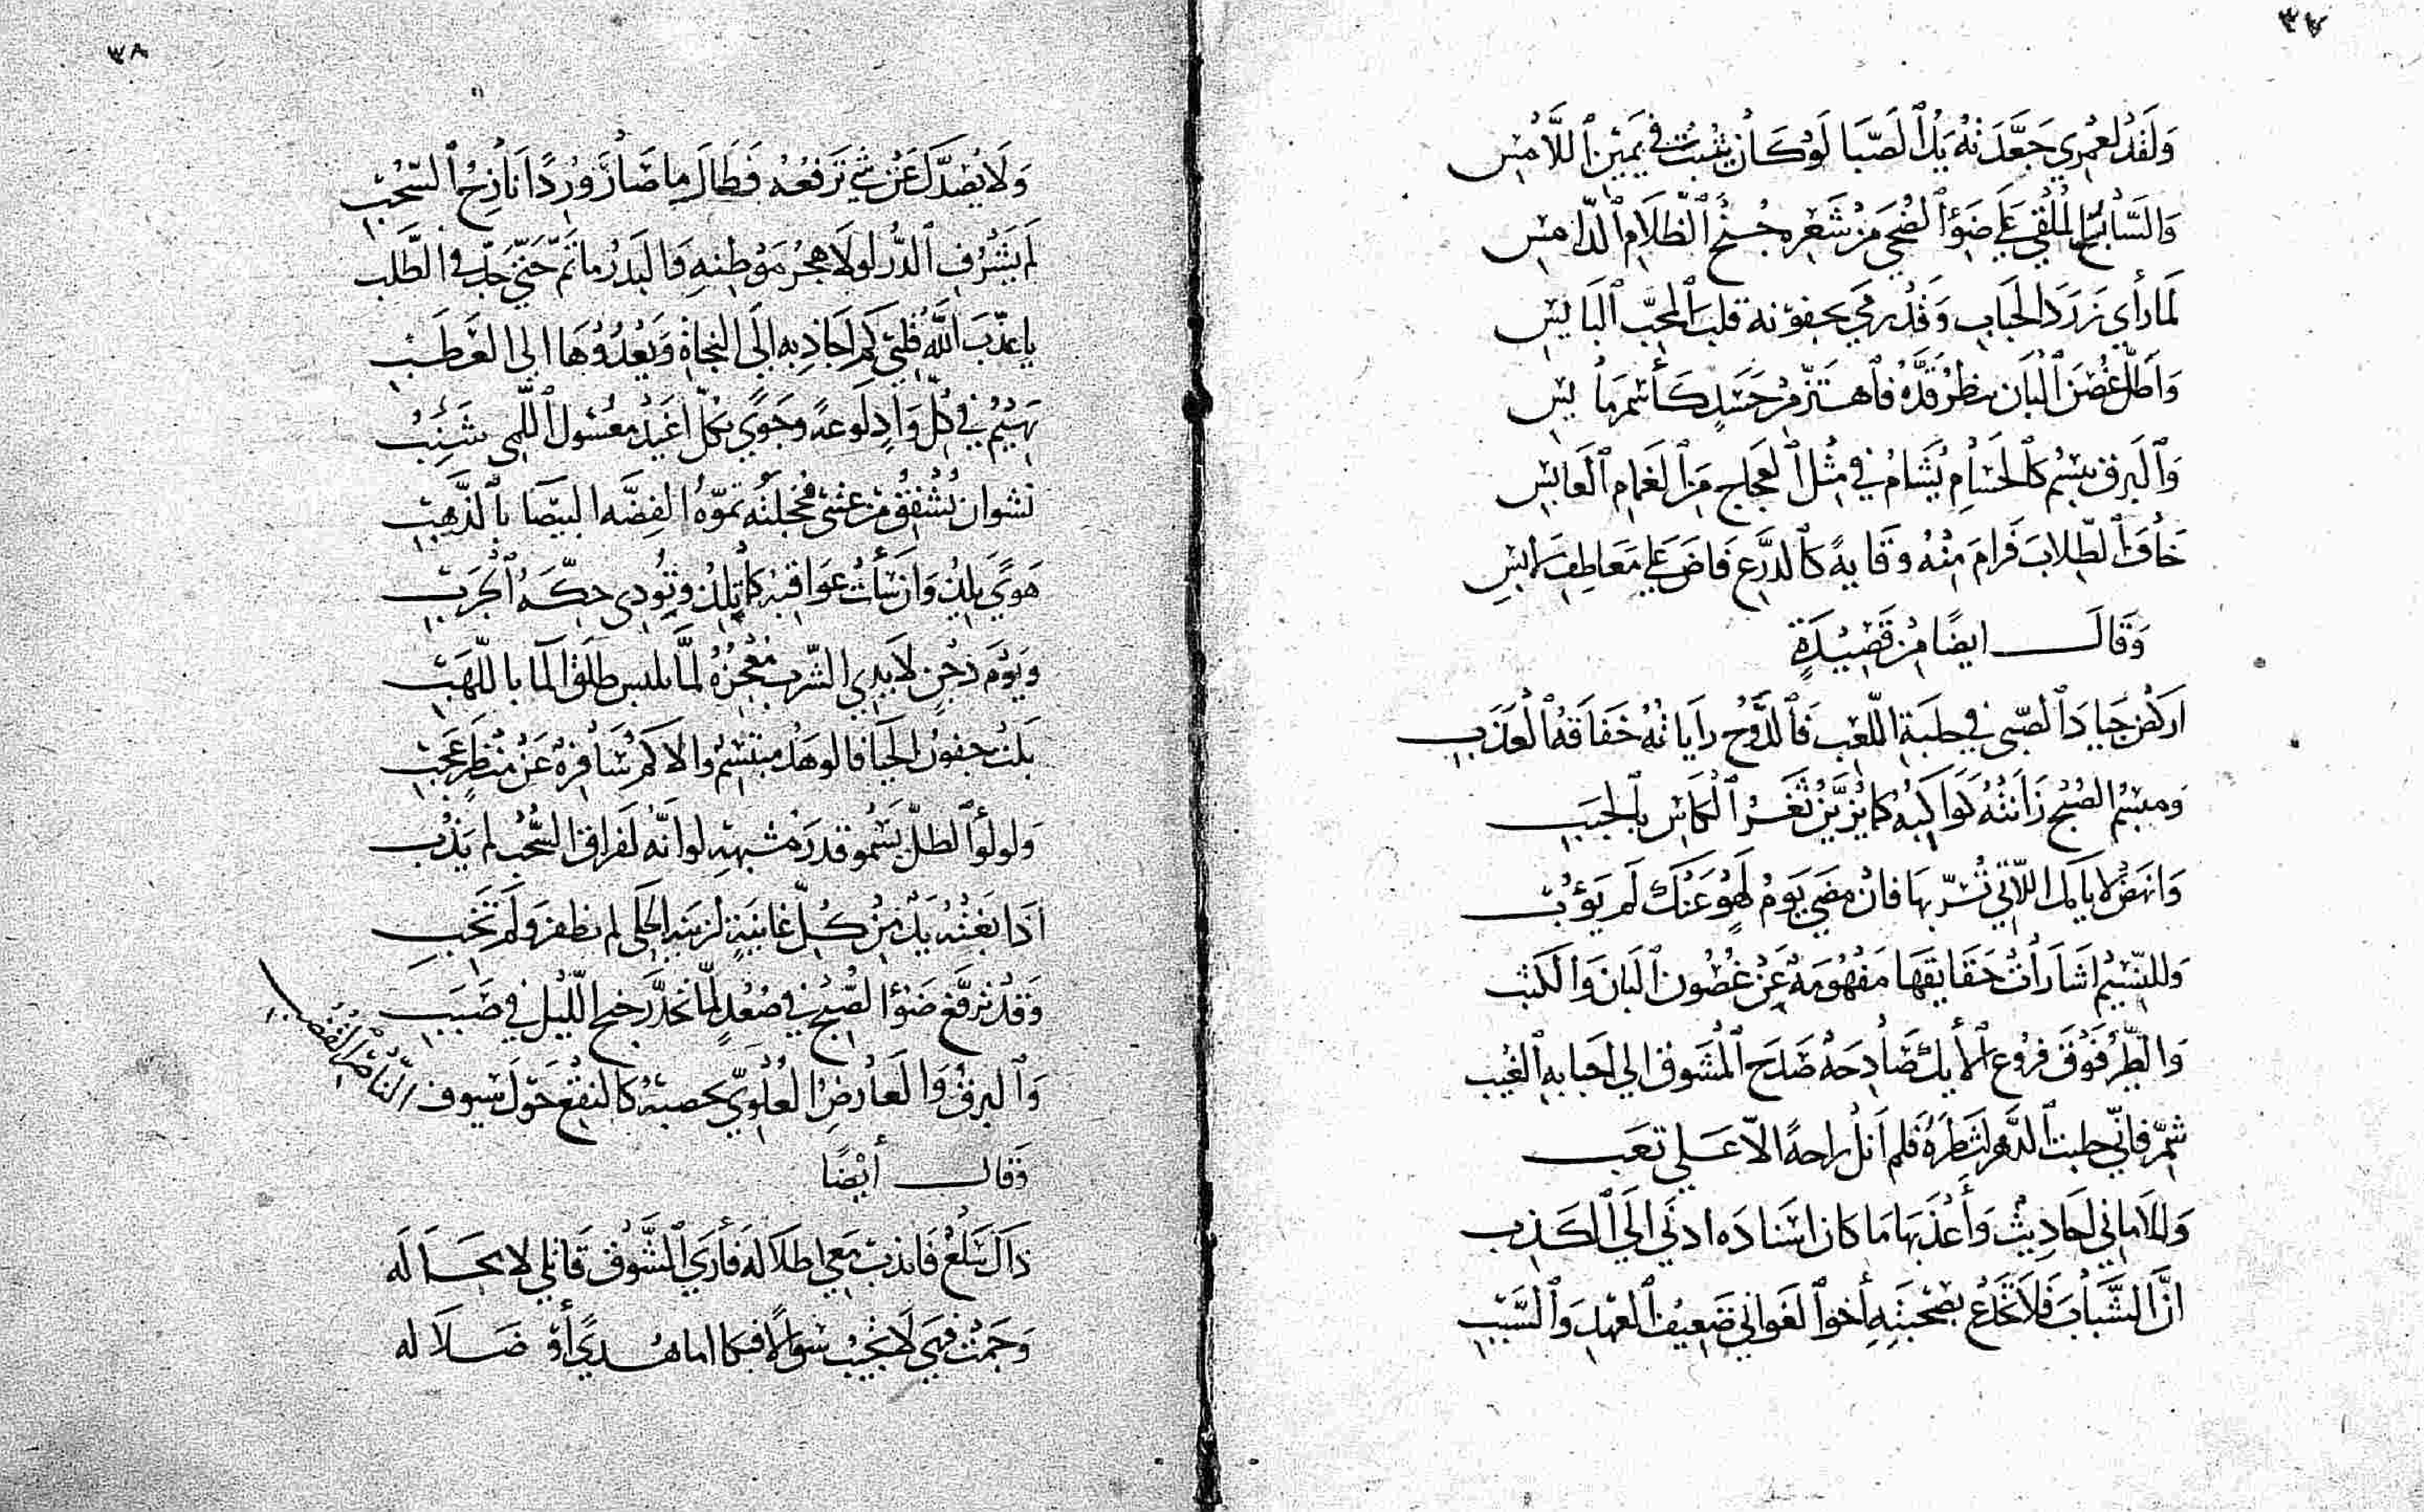 ٣٧
وَلَقَدْ لعَمْرِي جَعَّدَتْهُ يَدُ ٱلصَّبَا لَوْ كَانَ يثبتُ في يَمَيِن ٱللَّامِسِ
وَالسَّابحُ المُلْقي عَلَي ضَوْءِ ٱلضُحَي مِنْ شَعْرِهِ جُنْحَ ٱلظَّلَامِ ٱلدَّامِسِ
لَمّا رأي زَرَدَ الحَبَابِ وَقَدْ رَمَي بجفونه قلبَ ٱلمحِبّ ٱلبَايسِ
وَأَطلّ غُصْنَ ٱلْبَان ينظرُ قَدَّهُ فَاهتَزّ مِنْ حَسَدٍ كَأَسْمَرَ مايسِ
وَٱلبَرق يبسِمُ كٱلحُسَامِ يُشَامُ في مِثْلِ ٱلعجَاج مِنَ ٱلغَمَامِ ٱلعَابسِ
خَافَ ٱلطِّلابَ فَرامَ مِنْهُ وقَايةً كٱلدِّرْعِ فَاضَ عَلَي مَعَاطِفِ لابسِ
وَقَالَ ايضًا مِنْ قَصِيْدَةٍ
اركُض جِيادَ ٱلصِّبى في حلبَةِ اللّعِب فَٱلدَّوْحُ رايَاتُهُ خَفّاقَةُ ٱلعَذَبِ
ومبسِمُ الصُبْحِ زَانَتْهُ كَوَاكِبُهُ كمَا يُزَيَّنُ ثَغْرُ ٱلكَاسِ بٱلحَبَبِ
وَانهَضْ لايامك اللاّتي تُسَرّ بها فان مضَي يَومُ لَهْوٍ عَنْكَ لَم يَؤُبِ
وَللنّسِيْمِ اشَارَاتٌ حَقَايقهَا مَفْهُومَةٌ عَنْ غُصُون ٱلبَان وَٱلكثبِ
وَالطّيرُ فَوْقَ فروع ٱلأيكِ صَادِحَةٌ صَدْحَ ٱلمَشُوق الي احبَابهِ ٱلغيَبِ
شمّر فانّي حلبت ٱلدّهرَ اشطرَهُ فلم اَنَلْ راحةً الاّ عَلي تعَبِ
وَللامَاني احَادِيثٌ وَأَعْذبهَا مَا كان اسْنَادُه ادنَي الَي الكَذِبِ
انَّ الشَّبابَ فَلاَ تُخْدَعْ بصُحْبَتِهِ أخو ٱلغَواني ضَعيفُ ٱلعَهدِ وَٱلسَّببِ
٣٨
وَلَا يَصُدّكَ عَنْ شيٍ تَرَفّعُهُ فَطَالَ مِا صَارَ وِرْدًا نَازِحُ ٱلسّحُبِ
لَم يَشْرُفِ ٱلدُّر لولا هجرُ مَوْطِنهِ وَالبَدرُ ما تَمّ حَتيّ جدّ في الطَّلب
ياعذّبَ اللَّهُ قَلْبي كَم اُجَاذِبه الَي النجاةِ وَيَعْدُوهَا الى العَطَبِ
يَهيْمُ في كُلّ وَادٍ لَوعةً وجَوًي بكُلّ اغيَدَ معْسُولِ ٱللّمى شَنِبِ
نشوان تُشفِقُ من عيني فَخجلتُه تموّهُ الفِضّه البيضَا بٱلذّهَبِ
هَوًي يلذُّ وان سَاءَتْ عَوَاقبُه كما تلذّ وتؤذي حِكّةُ ٱلجَرَبِ
وَيَوْمَ دَجْنٍ لاَيدِي الشّربِ مُعْجِزةٌ لمّا تلبس طلقُ المَا باللّهَبِ
بَكَتْ جفونُ الحَيا فالوهدُ مبتَسِمٌ والاكمُ سَافِرةٌ عَن مَنْظَرٍ عَجَبِ
وَلولؤُ ٱلطلّ يَسْمو قدرَ مُشبهِهِ لوانّه لفراق السُّحْبِ لم يَذُبِ
اذَا بَغَتْهُ يَدٌ مِنْ كُلّ غَانيَةٍ لزينةِ الحلي لم تظفرْ وَلَمْ تَخِبِ
وَقَدْ ترفّعَ ضَوْءُ الصُّبْحِ في صُعُدٍ لمّا تحدّرَ جنح اللّيل في صَبَبِ
وَٱلبرقُ وَالعَارضُ العُلْويّ تحصبُه كالنقْع حَوْلَ سيوف النَّاصِر ٱلقُضُبِ
وَقال أيْضًا
ذَاكَ سَلْعٌ فَاندُبْ مَعي اطلاَلَه فَأري ٱلشَّوْقَ قَاتلي لا محَالَه
وَجَمَتْ فهَي لاَ تجُيْبُ سُؤالاً فبكا اما هُدًي أوْ ضَلاَلَه